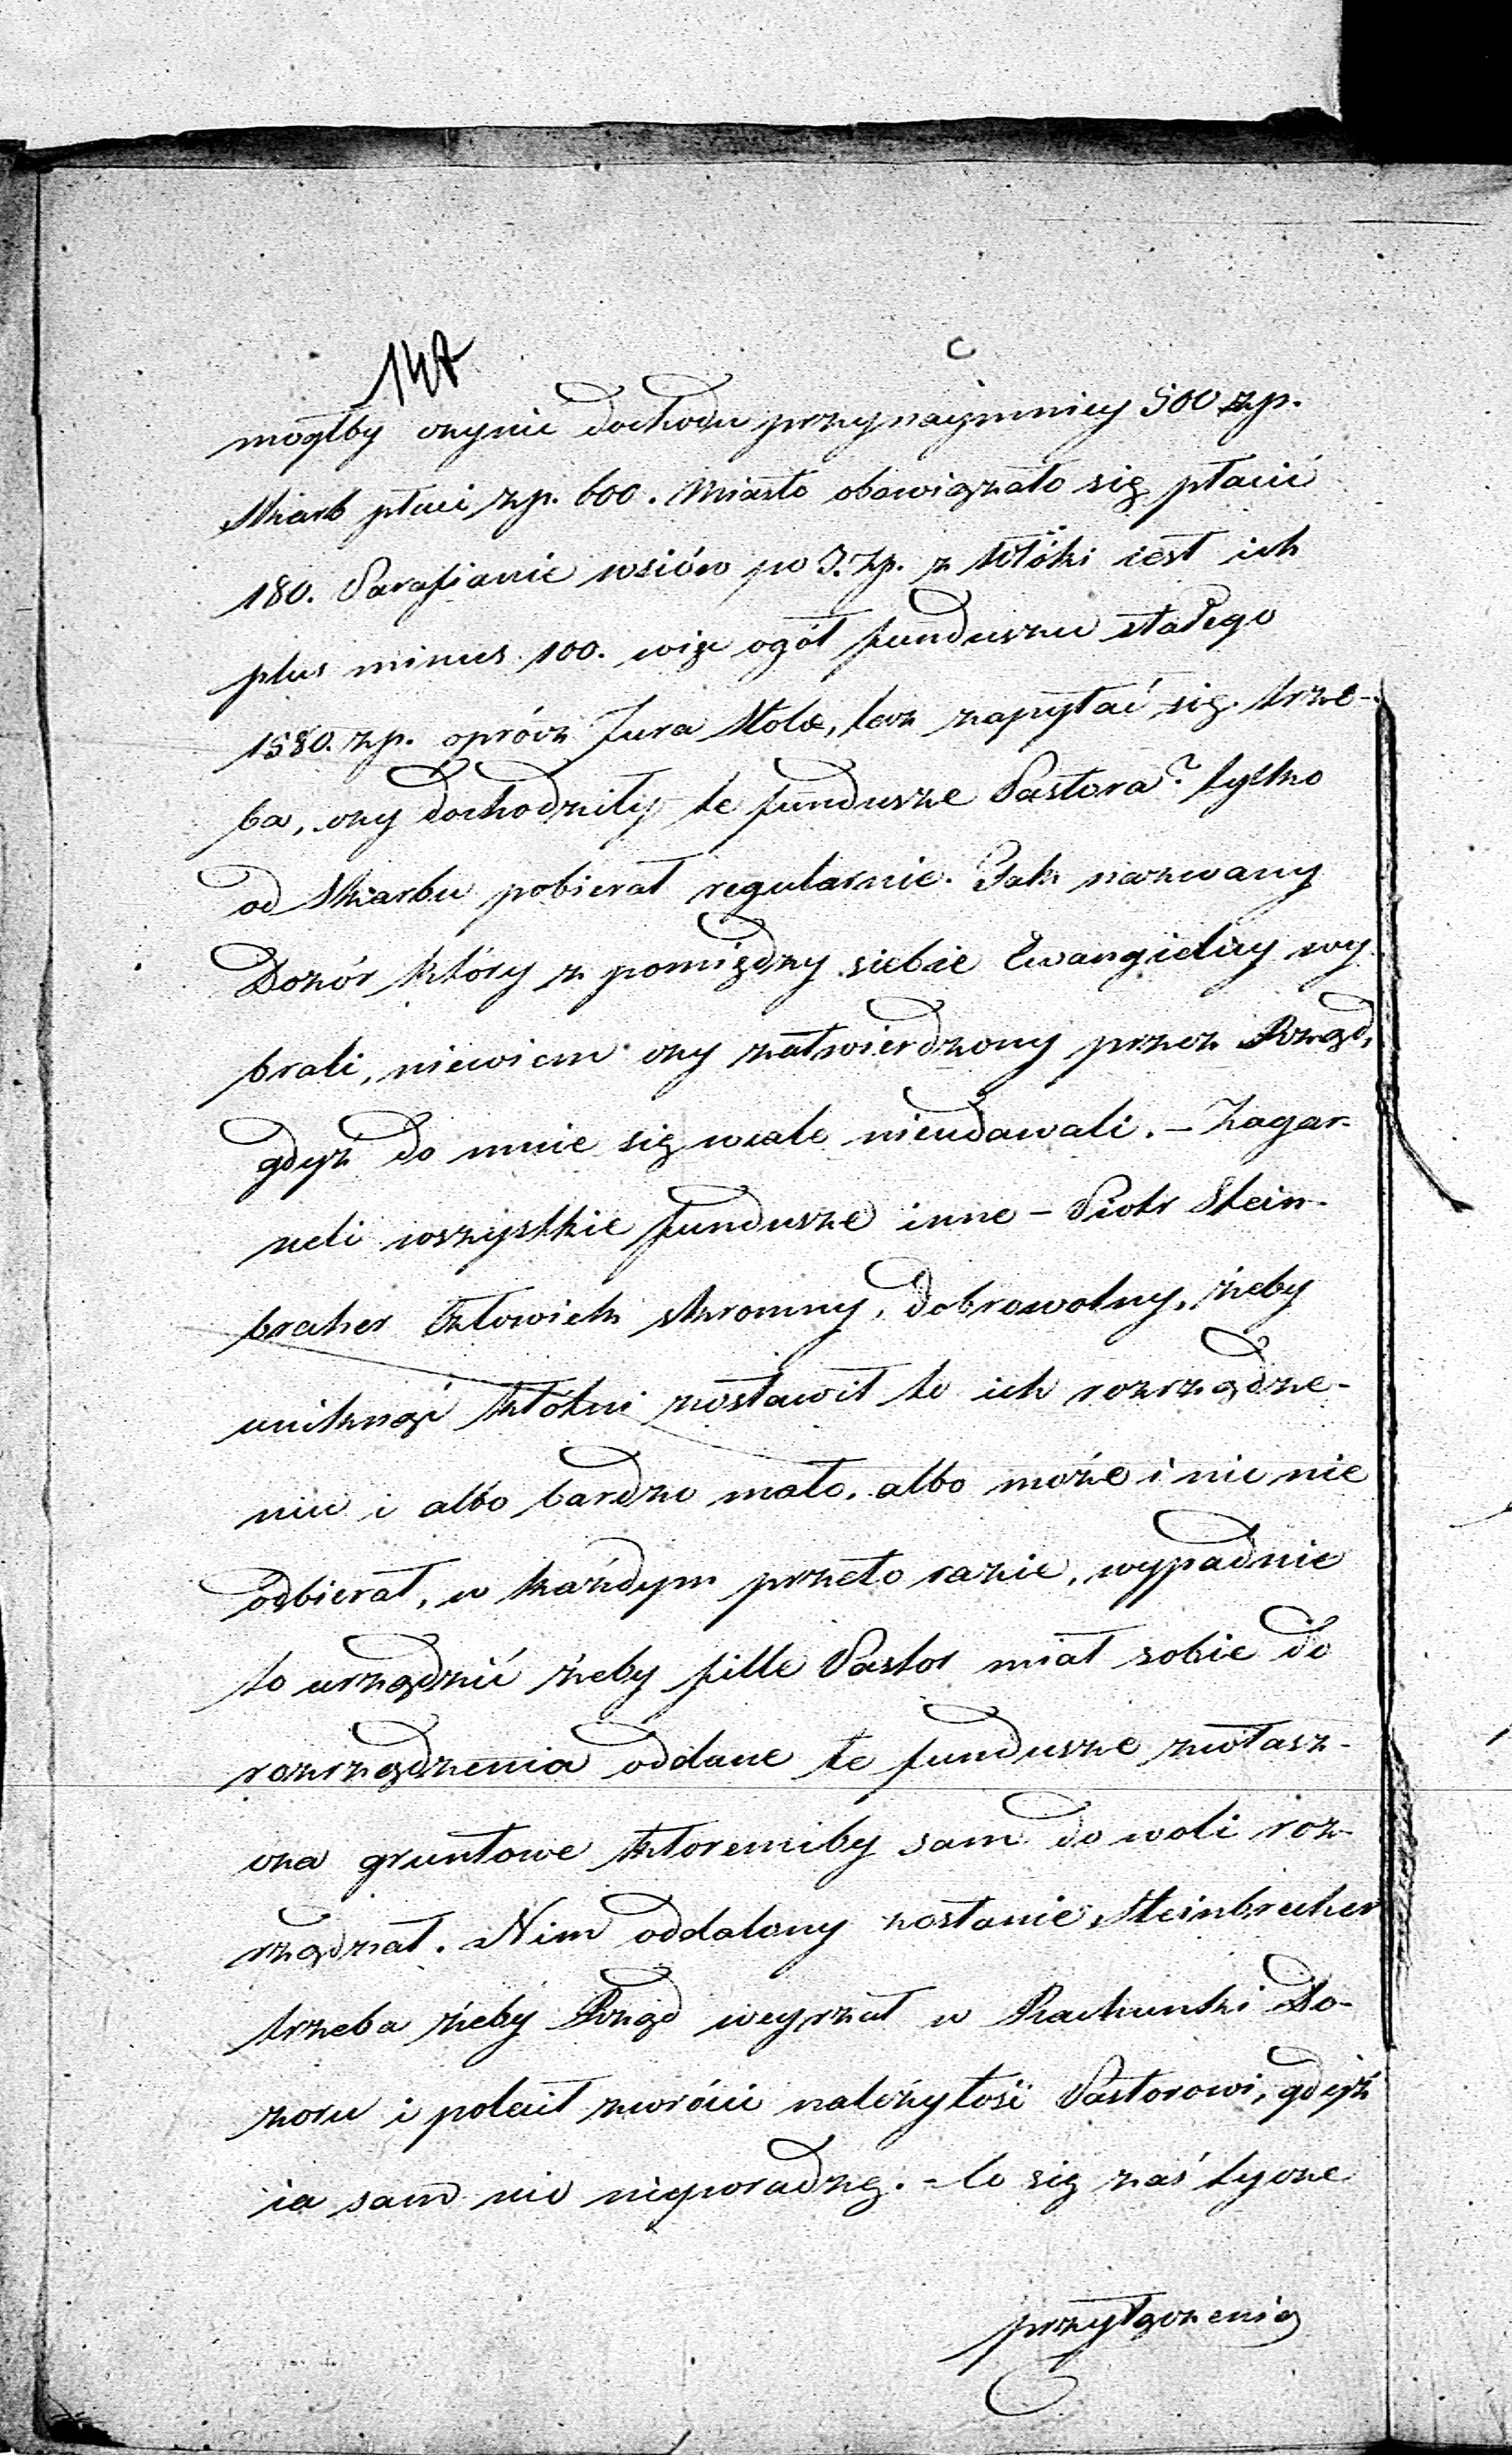 147
mogłby czynić dochodu przynaymniey 500 zp.
Skarb płaci zp. 600. Miasto obowiązało się płacić
180. Parafianie wsiów po 3. zp. z Włóki iest ich
plus minus 100. więc ogół funduszu stałego
1580. zp. oprócz Jura Stolæ, lecz zapytać się trze-
ba, czy dochodziły te fundusze Pastora? tylko
od Skarbu pobierał regularnie. Tak nazwany
Dozór który z pomiędzy siebie Ewangielicy wy
brali, niewiem czy zatwierdzony przez Rząd,
gdyż do mnie się wcale nieudawali. – Zagar-
neli wszystkie fundusze inne – Piotr Stein-
brecher Człowiek skromny, dobrowolny, żeby
uniknąć kłótni zostawił to ich rozrządze-
niu i albo bardzo mało, albo może i nic nie
odbierał, w każdym przeto razie, wypadnie
to urządzić żeby fille Pastor miał sobie do
rozrządzenia oddane te fundusze zwłasz-
cza gruntowe ktoremiby sam do woli roz-
rządzał. Nim oddalony zostanie Steinbrecher
trzeba żeby Rząd weyrzał w Rachunki Do-
zoru i polecił zwrócić należytość Pastorowi, gdyż
ia sam nic nieporadzę. – Co się zaś tycze
przyłączenia